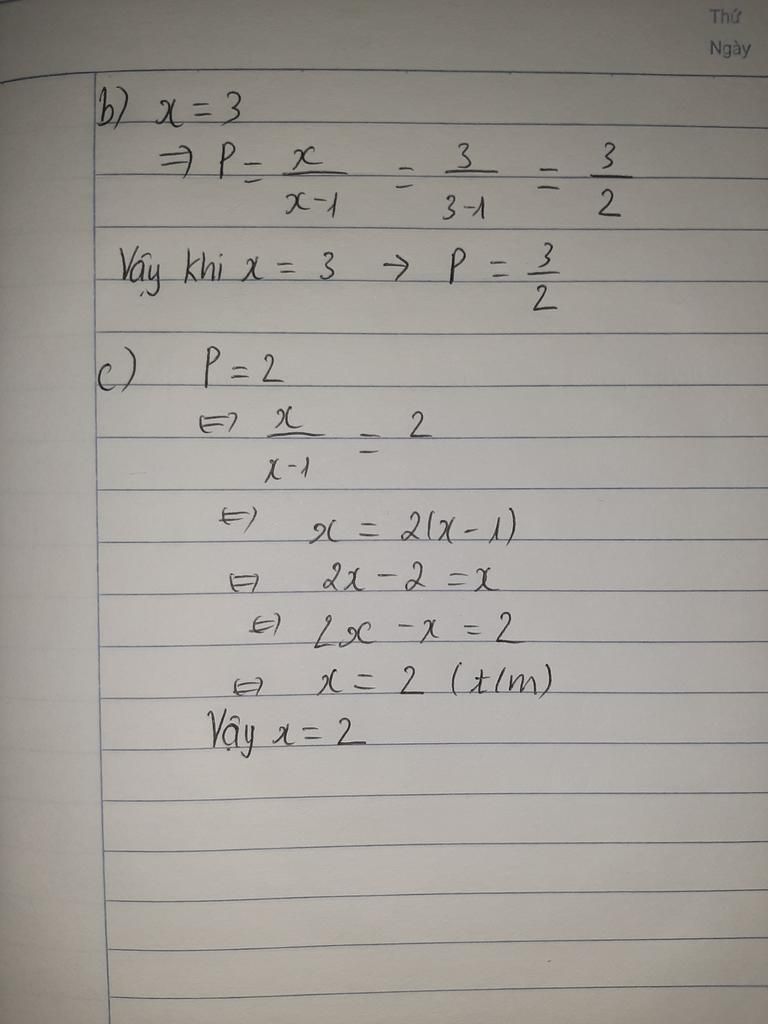 Thứ
Ngày
b) x = 3
⇒ P = x/(x-1) = 3/(3-1) = 3/2
Vậy khi x = 3 → P = 3/2
c) P = 2
⇔ x/(x-1) = 2
⇔ x = 2(x-1)
⇔ 2x - 2 = x
⇔ 2x - x = 2
⇔ x = 2 (t/m)
Vậy x = 2